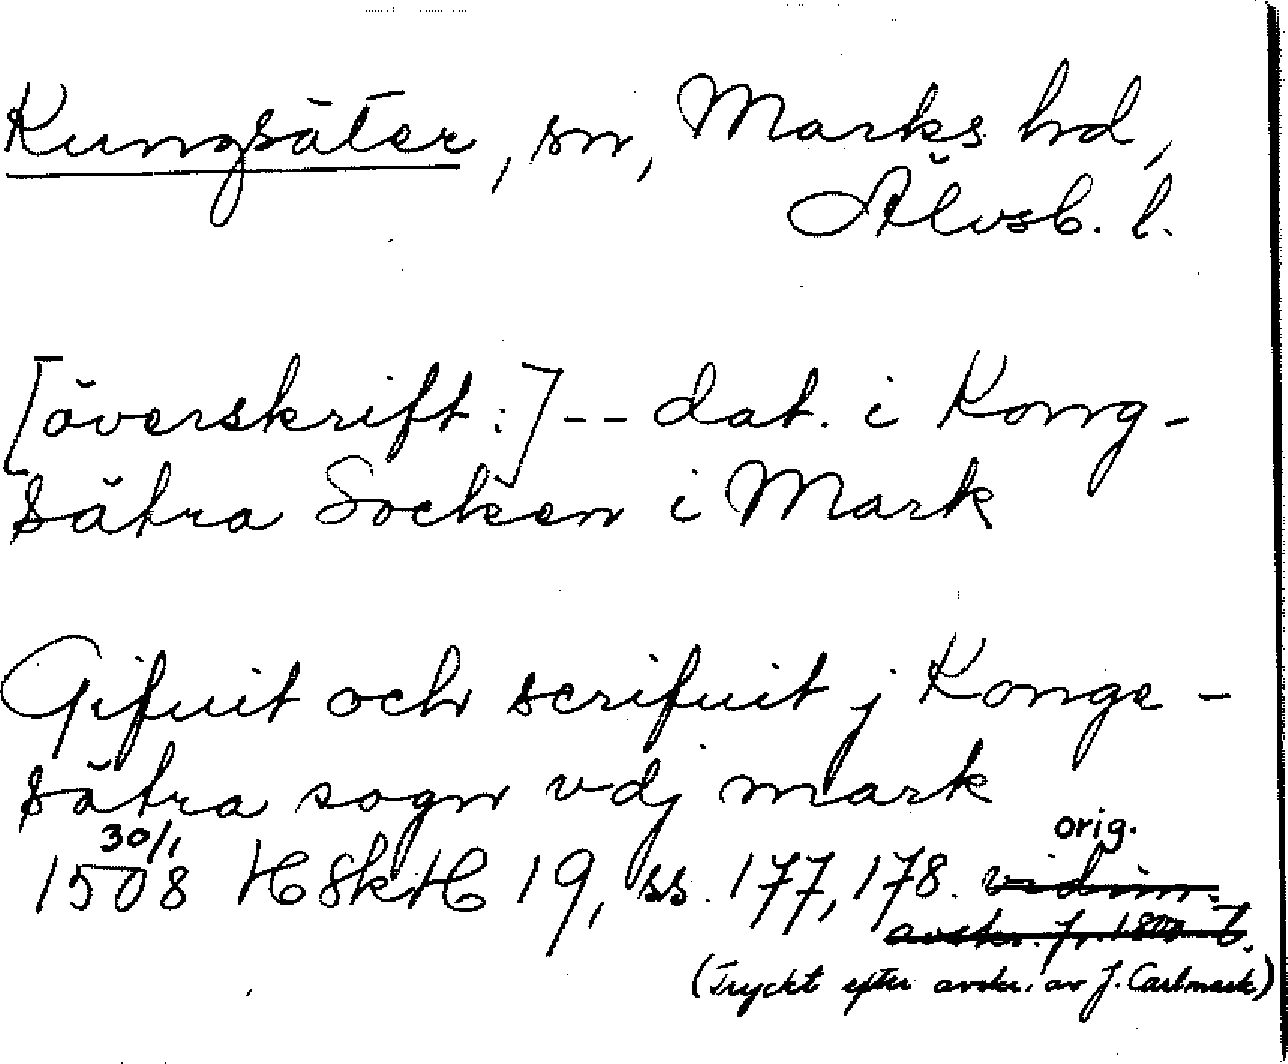 Kungsäter, sn, Marks hd,
Älvsb. l.
[överskrift:] -- dat. i Kong-
sätra Socken i Mark
Gifuit och scrifuit j Konge-
sätra sogn vdj mark
30/1 orig.
1508 HSkH 19, ss. 177, 178. vidim.
avskr. fr. 1800-t.
(Tryckt efter avskr. av J. Carlmark)